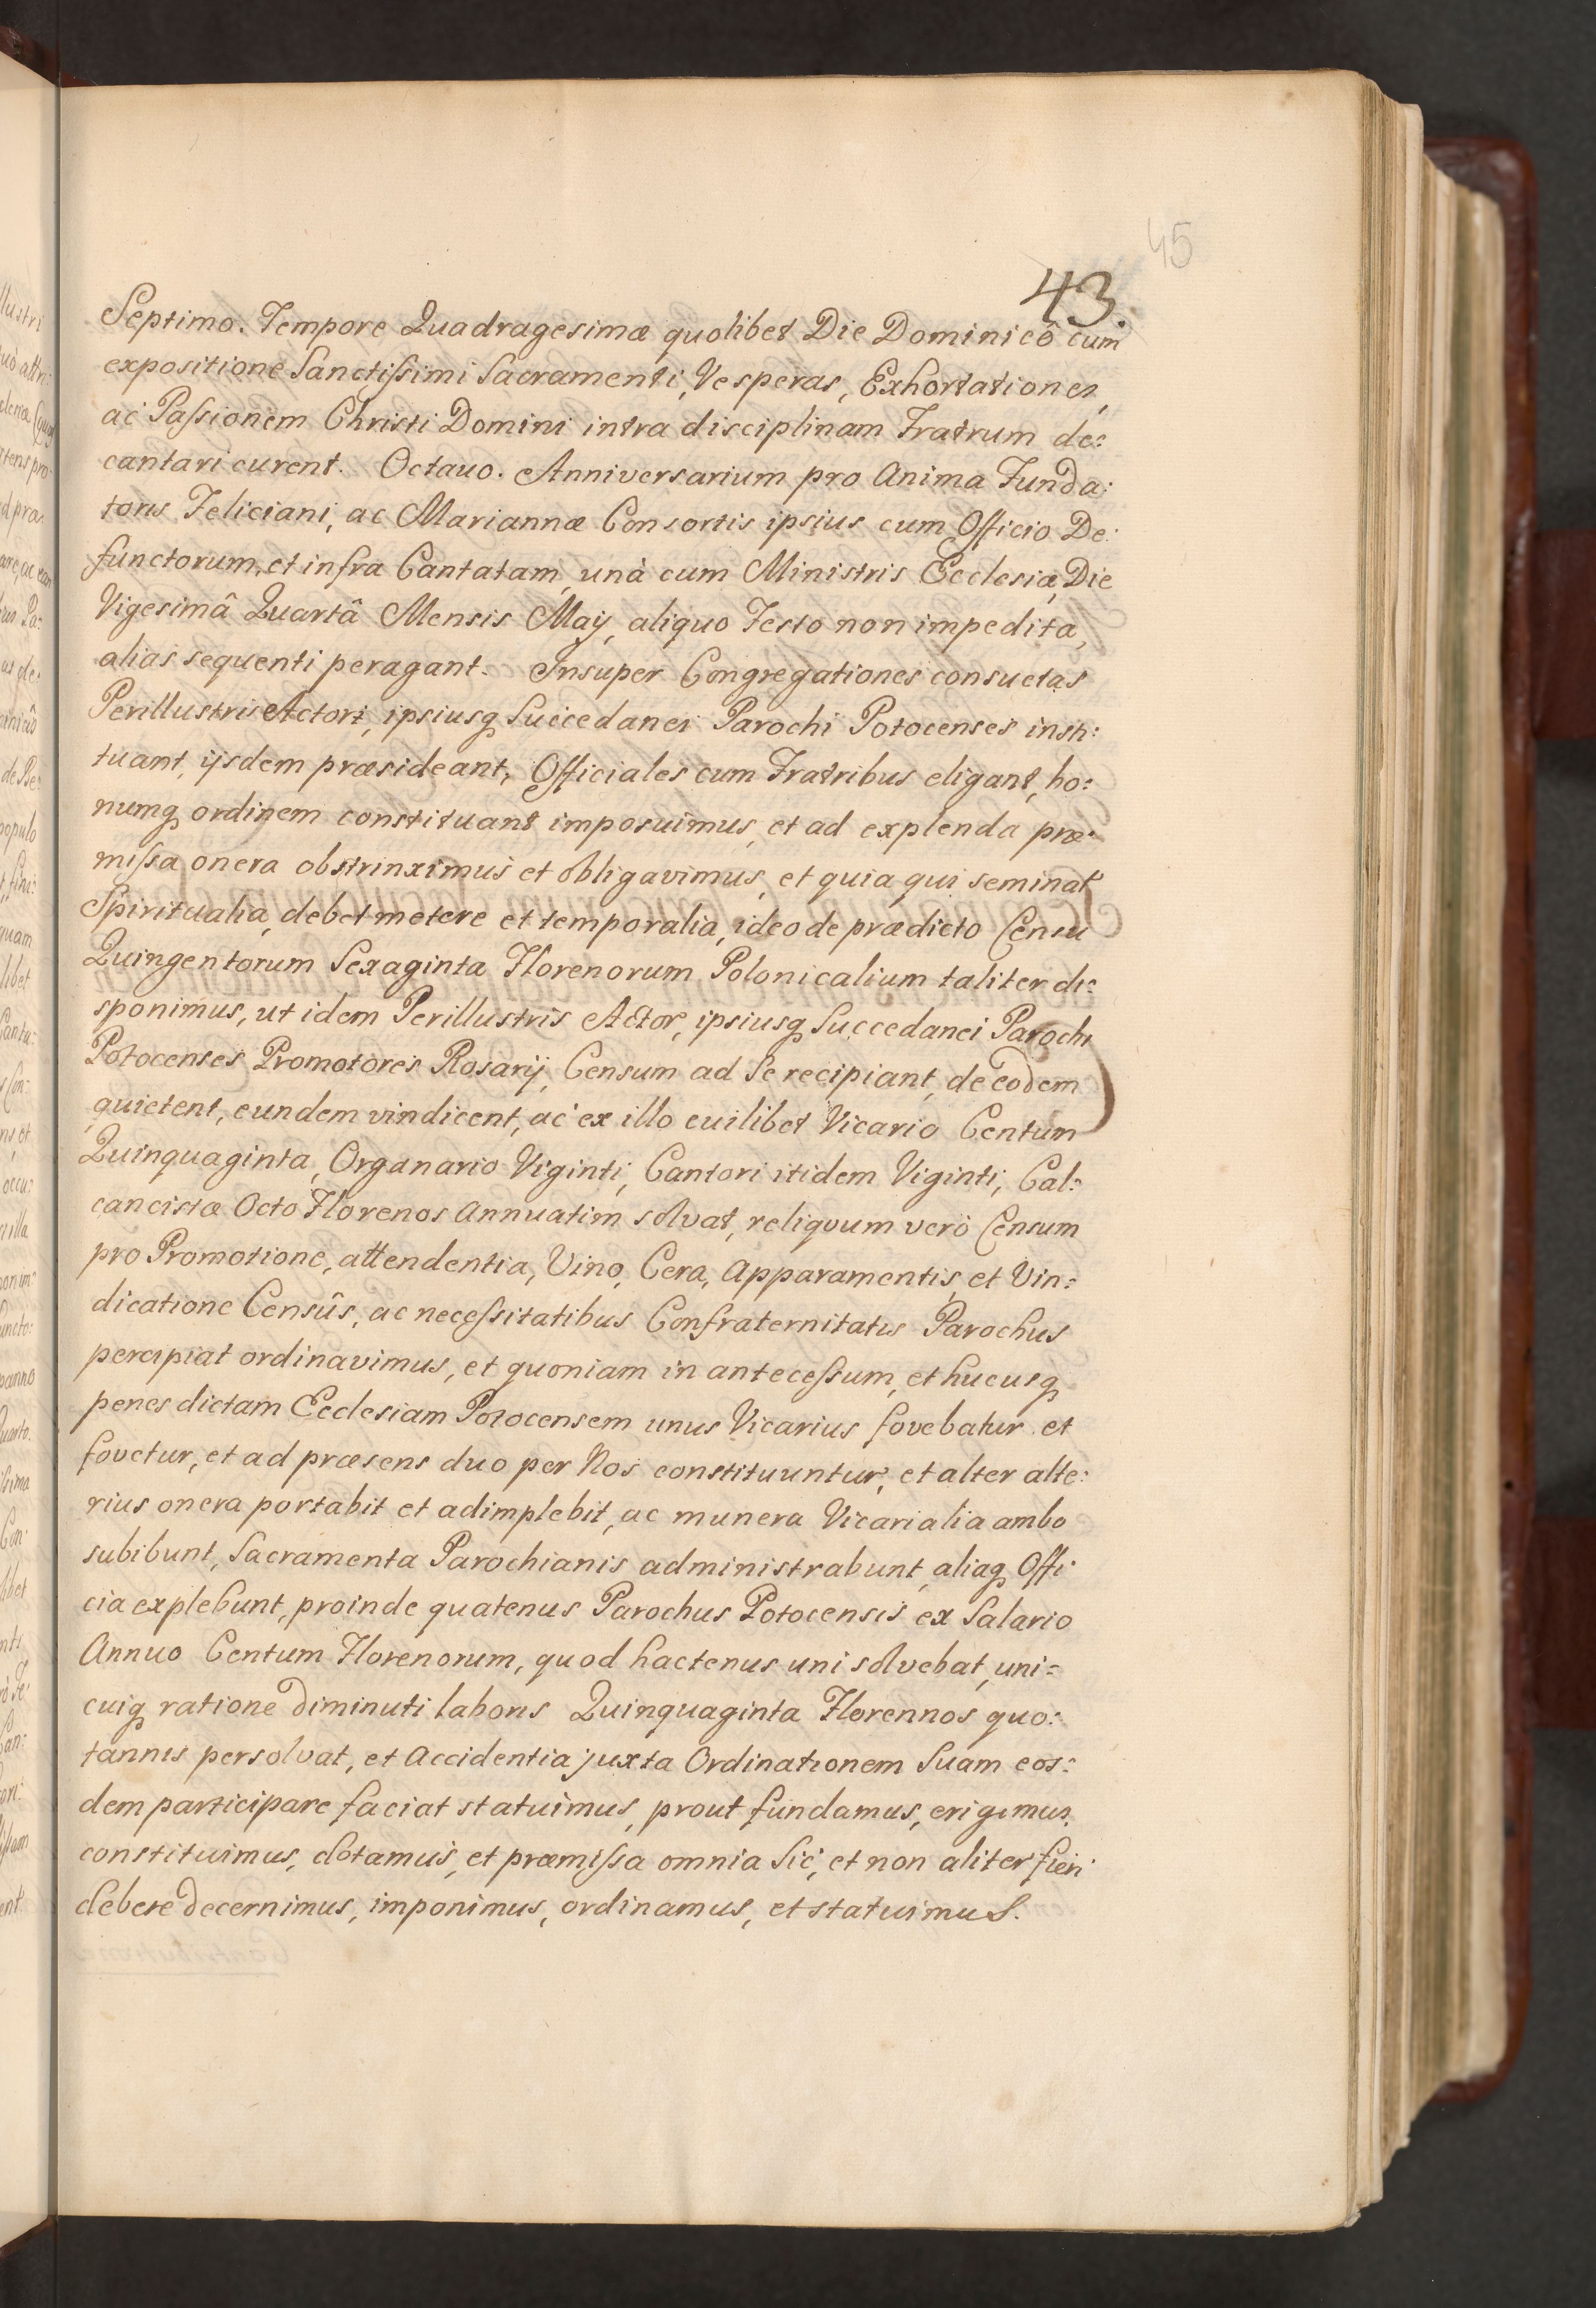 45
43.
Septimo. Tempore Quadragesimæ quolibet Die Dominicô cum
expositione Sanctiſsimi Sacramenti, Vesperas, Exhortationes,
ac Paſsionem Christi Domini intra disciplinam Fratrum de:
cantari curent. Octauo. Anniversarium pro Anima Funda:
toris Feliciani, ac Mariannæ Consortis ipsius cum Officio De:
functorum, et infra Cantatam, unà cum Ministris Ecclesiæ, Die
Vigesimâ Quartâ Mensis Maÿ, aliquo Festo non impedita,
alias sequenti peragant. Insuper Congregationes consuetas
Perillustris Actor, ipsiusq Succedanei Parochi Potocenses insti:
tuant, ijsdem præsideant, Officiales cum Fratribus eligant, bo:
numq ordinem constituant imposuimus, et ad explenda præ:
miſsa onera obstrinximus et obligavimus, et quia qui seminat
Spiritualia, debet metere et temporalia, ideo de prædicto Censu
Quingentorum Sexaginta Florenorum Polonicalium taliter di:
sponimus, ut idem Perillustris Actor, ipsiusq Succedanei Parochi
Potocenses Promotores Rosarij, Censum ad Se recipiant, de eodem
quietent, eundem vindicent, ac ex illo cuilibet Vicario Centum
Quinquaginta, Organario Viginti, Cantori itidem Viginti, Cal:
cancistæ Octo Florenos Annuatim solvat, reliquum verò Censum
pro Promotione, attendentia, Vino, Cera, Apparamentis, et Vin:
dicatione Censûs, ac neceſsitatibus Confraternitatis Parochus
percipiat ordinavimus, et quoniam in anteceſsum, et hucusq
penes dictam Ecclesiam Potocensem unus Vicarius fovebatur et
fovetur, et ad præsens duo per Nos constituuntur, et alter alte:
rius onera portabit et adimplebit, ac munera Vicarialia ambo
subibunt, Sacramenta Parochianis administrabunt, aliaq Offi
cia explebunt, proinde quatenus Parochus Potocensis ex Salario
Annuo Centum Florenorum, quod hactenus uni solvebat, uni:
cuiq ratione diminuti laboris Quinquaginta Florennos quo:
tannis persolvat, et Accidentia juxta Ordinationem Suam eos:
dem participare faciat statuimus, prout fundamus, erigimus,
constituimus, dotamus, et præmiſsa omnia Sic, et non aliter fieri
debere decernimus, imponimus, ordinamus, et statuimus.